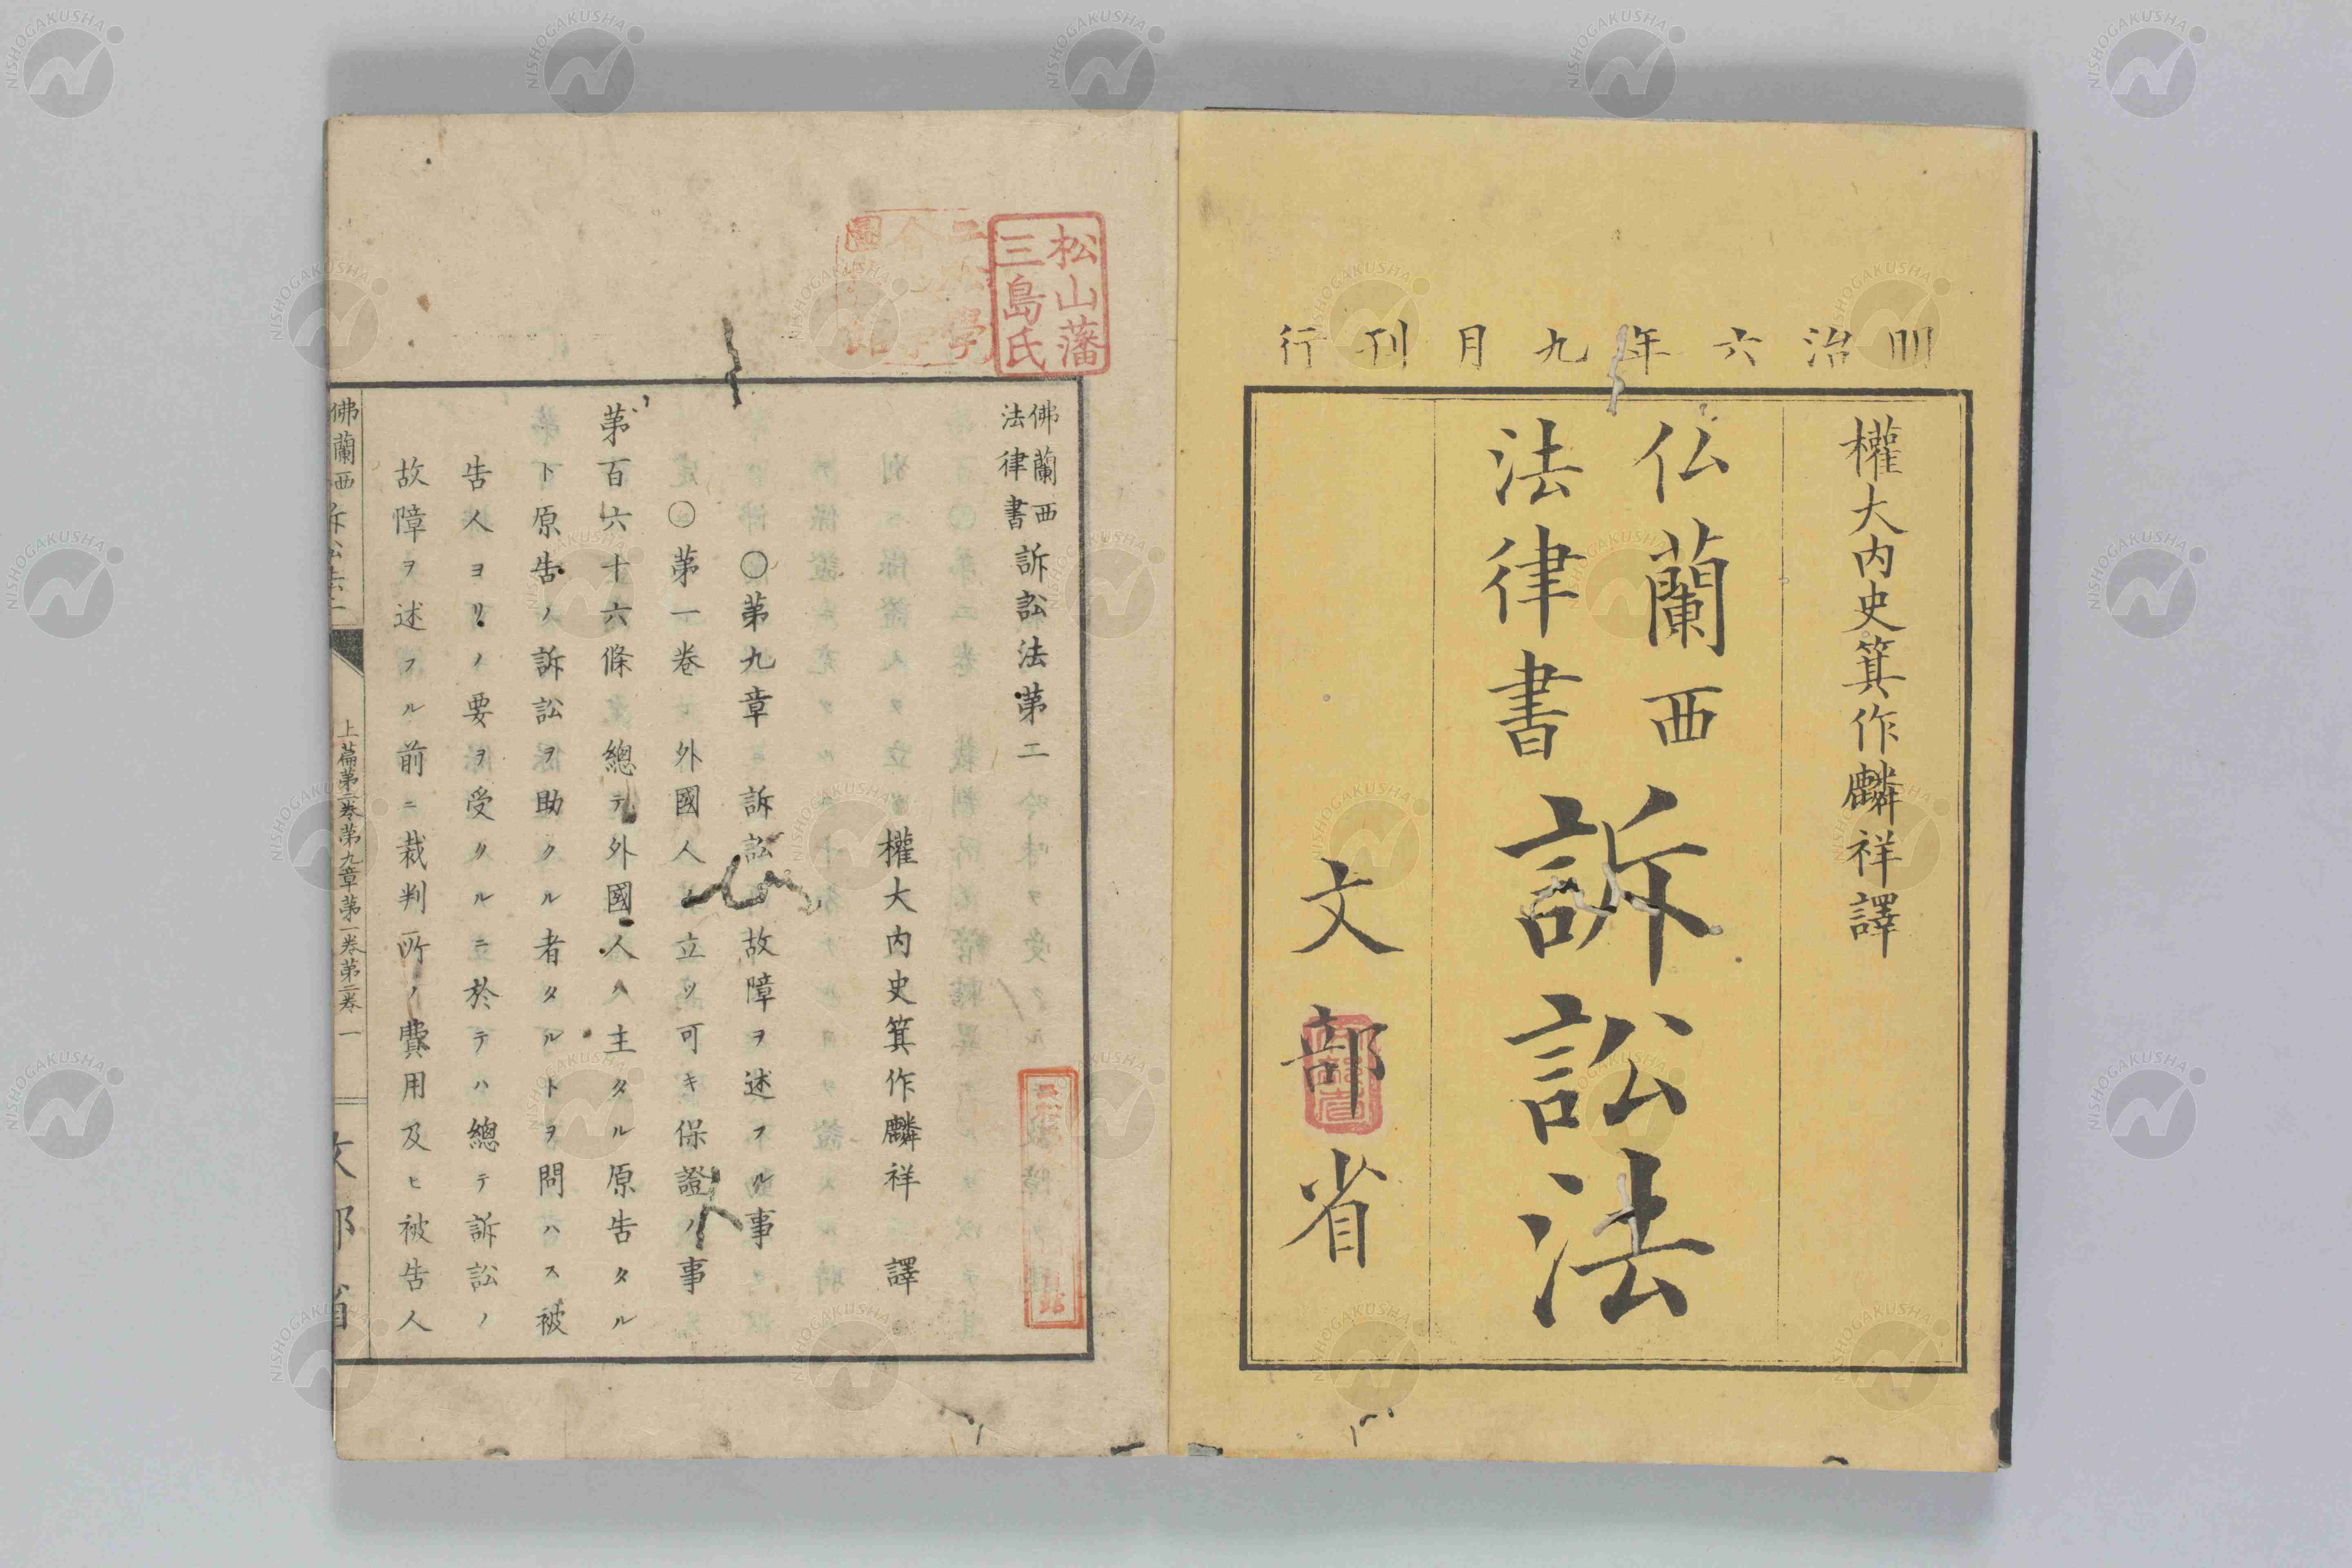 明治六年九月刊行
權大内史箕作麟祥譯
仏蘭西
法律書
訴訟法
文部省
松山藩
三島氏
佛蘭西
法律書
訴訟法第二
權大内史箕作麟祥 譯
〇第九章 訴訟 故障ヲ述フル事
〇第一卷 外國人ノ立ツ可キ保證ノ事
第百六十六條 總テ外國人ハ主タル原告タル
ト原告ノ訴訟ヲ助クル者タルトヲ問ハス被
告人ヨリノ要ヲ受クルニ於テハ總テ訴訟ノ
故障ヲ述フル前ニ裁判所ノ費用及ヒ被告人
佛蘭西訴訟法二
上篇第二卷第九章第一卷第二卷 一
文部省
NISHOGAKUSHA